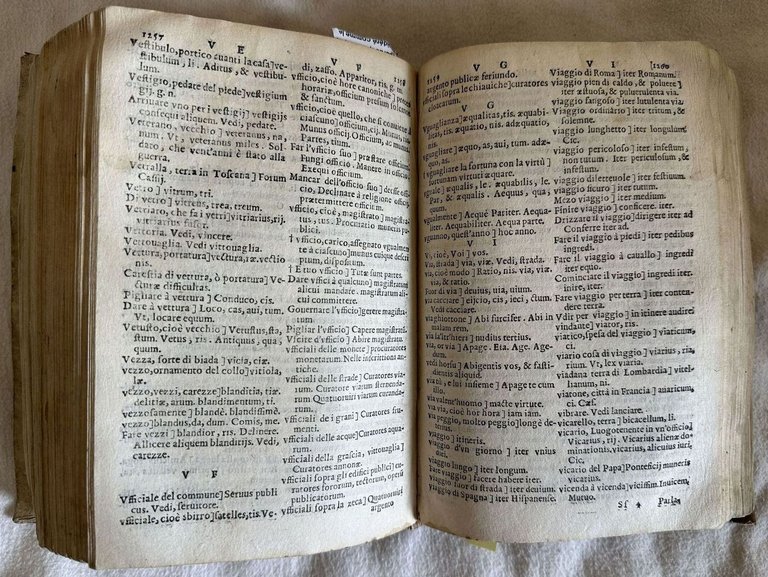 1257
V E
Vestibulo, portico auanti la casa] ve-
stibulum, li. Aditus, & vestibu-
lum.
Vestigio, pedate del piede] vestigium
gij. g. n.
Arriuare vno per i vestigij] vestigijs
consequi aliquem. Vedi, pedate.
Veterano, vecchio] veteranus, na,
num. veteranus miles. Sol-
dato, che vent'anni è stato alla
guerra.
Vetralla, terra in Toscana] Forum
Cassij.
Vetro] vitrum, tri.
Di vetro] vitreus, trea, treum.
Vetriaro, che fai vetri] vitriarius, rij.
vitriarius fusor.
Vettoria. Vedi, vincere.
Vettouaglia. Vedi vittouaglia.
Vettura, portatura] vectura, ræ vectio
nis.
Carestia di vettura, ò portatura] Ve-
cturæ difficultas.
Pigliare à vettura] Conduco, cis.
Dare à vettura] Loco, cas, aui, tum.
Vt, locare equum.
Vetusto, cioè vecchio] Vetustus, sta,
stum. Vetus, ris. Antiquus, qua,
quum.
Vezza, sorte di biada] vicia, ciæ.
vezzo, ornamento del collo] vitiola,
læ.
vezzo, vezzi, carezze] blanditia, tiæ
delitiæ, arum. blandimentum, ti.
vezzosamente] blandè. blandissimè.
vezzoso] blandus, da, dum. Comis, me.
Fare vezzi] blandior, ris. Delinire.
Allicere aliquem blanditijs. Vedi,
carezze.
V F
Vfficiale del commune] Seruus publi
cus. Vedi, seruitore.
vfficiale, cioè sbirro] satelles, tis. Ve-
V F
1258
di, zaffo. Apparitor, ris. g. m.
vfficio, cioè hore canoniche] preces
horariæ, officium presum
& sanctum.
vfficio, cioè quello, che si commette
Munus officij Officium, cij. Munus,
Partes, tium.
Far l'vfficio suo] præstare officium
Fungi officio. Manere in officio
Exequi officium.
Mancar dell'officio suo] deesse
officio, Declinare à religione officij
prætermittere officium.
vfficio, cioè, magistrato] magistratus,
tus. Procuratio muneris publici
† vfficio, carico, assegnato vgualmente
à ciascuno] munus cuique descriptum
† E tuo vfficio] Tutæ sunt partes.
Dare vfficio ad vno] magistratum
alicui mandare. magistratum alicui
committere.
Gouernare l'vfficio] gerere magistratum
Pigliar l'vfficio] Capere magistratum
Vscire d'vfficio] Abire magistratu.
vfficiali delle monete] procuratores
monetarum. Nelle inscrittioni antiche.
vfficiali delle strade] Curatores viarum
Curatore viarum sternendarum
Quatuoruiri viarum curandarum
vfficiali de i grani] Curatores frumenti.
vfficiali delle acque] Curatores aquarum.
vfficiali della grascia, vittouaglia]
Curatores annonæ.
vfficiali sopra gli edifici publici] curatores
fororum, tectorum, operum
publicatorum.
vfficiali sopra la zeca] Quatuoruiri
argento
1259
V G
argento publicæ feriundo.
vfficiali sopra le chiauiche] curatores
cloacarum.
V G
Vguaglianza] æqualitas, ris. æquabilitas,
ris. æquatio, nis. adæquatio,
nis.
Vguagliare] æquo, as, aui, tum. adæquo,
as.
vguagliare la fortuna con la virtù]
fortunam virtuti æquare.
Vguale] æqualis, & le. æquabilis, le.
Par, & æquus, qua, quum. Vedi,
pari.
vgualmente] Aequè Pariter. Aequaliter.
Aequabiliter. Aequa parte.
vguanno, quest'anno] hoc anno.
V I
Vi, cioè, Voi] vos.
via, strada] via, viæ. Vedi, strada.
via, cioè modo] Ratio, nis. via, viæ.
Vedi, strada.
Fuor di via] deuius, uia, uium.
via cacciare] eijcio, cis, ieci, ctum.
Vedi cacciare.
via ghiottone] Abi furcifer. Abi in
malam rem.
via ier'hiersera] nudius tertius.
via, ò or via] Apage. Eia. Age. Agedum.
vedi horsu] Abigentis vos, & fastidientis
aliquid.
via di, e lui insieme] Apage te cum
illo.
via valent'huomo] macte virtute.
via, cioè hor hora] iam iam.
Via peggio, molto peggio] longè deterius.
viaggio] itineris.
viaggio d'vn giorno] iter vnius
diei.
viaggio lungo] iter longum.
Fare viaggio] facere habere iter.
viaggio fuor di strada] iter deuium.
viaggio di Spagna] iter Hispaniense.
V I
1260
Viaggio di Roma] iter Romanum.
viaggio pien di caldo, & di poluere]
iter æstuosa, & puluerulenta via.
viaggio fangoso] iter lutulenta via.
Viaggio ordinario] iter tritum, &
solemne.
viaggio lunghetto] iter longulum.
Cic.
viaggio pericoloso] iter infestum,
non tutum. Iter periculosum, &
infestum.
viaggio dilettenole] iter festiuum
viaggio sicuro] iter tutum.
Mezo viaggio] iter medium.
Finire viaggio] conficere iter.
Drizzare il viaggio] dirigere iter ad
Conferre iter.
Fare il viaggio à piedi] iter pedibus
ingredi.
Fare il viaggio à cauallo] ingredi
iter equo.
Cominciare il viaggio] ingredi iter.
inire iter.
Fare viaggio per terra] iter contendere
terra.
Vdite per viaggio] in itinere audirei
viandante] viator, ris.
viatico, spesa del viaggio] viaticum,
ci.
viario cosa di viaggio] viarius, ria,
rium. Vt, lex viaria.
viadana terra di Lombardia] vitellianum,
ni.
viatone, città in Francia] auaricum,
ci. Cæs.
vibrare. Vedi lanciare.
vicarello, terra] bicacellum, li.
vicario, Luogotenente in vn'officio]
Vicarius, rij. Vicarius alienæ dominationis.
Vicarius alieni iuris.
Cic.
vicario del Papa] Pontificij muneris
vicarius.
vicenda à vicenda] vicissim. Inuicem,
Mutuo.
Sſ * Parla